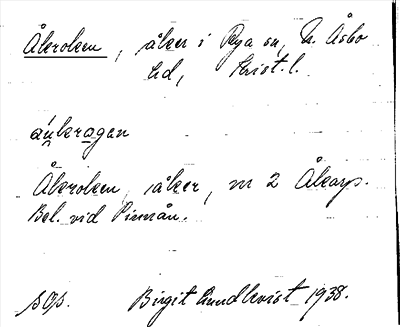 Åkroken, åker i Rya sn, N. Åsbo
hd, Krist. l.
åukragen
Åkroken, åker, nr 2 Åkarp.
Bel. vid Pinnån.
Birgit Lundkvist 1938.